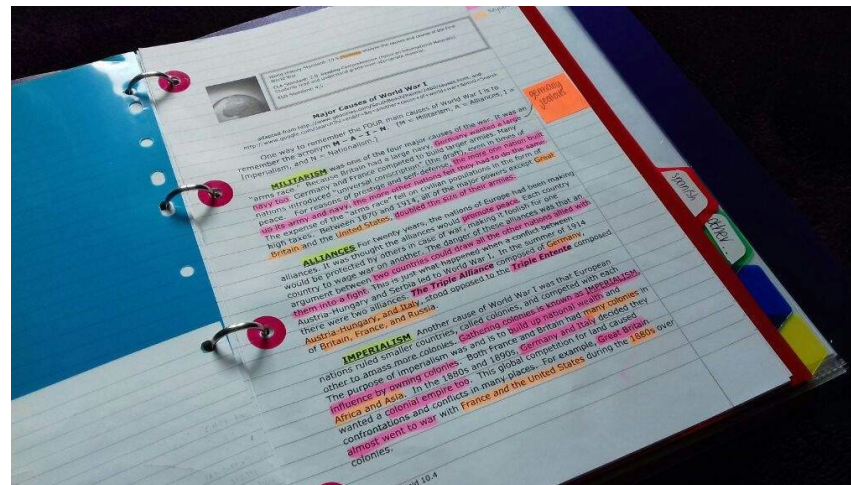 Major Causes of World War I
One way to remember the FOUR main causes of World War I is to
remember the acronym M – A – I – N. (M = Militarism, A = Alliances, I =
Imperialism, and N = Nationalism.)
MILITARISM was one of the four major causes of the war. It was an
"arms race." Because Britain had a large navy, Germany wanted a large
navy too. Germany and France competed to build larger armies. Many
nations introduced "universal conscription" (the draft), even in times of
peace. For reasons of prestige and self-defense, the more one nation built
up its army and navy, the more other nations felt they had to do the same.
The expense of the "arms race" fell on civilian populations in the form of
high taxes. Between 1870 and 1914, all of the major powers except Great
Britain and the United States, doubled the size of their armies.
ALLIANCES For twenty years, the nations of Europe had been making
alliances. It was thought the alliances would promote peace. Each country
would be protected by others in case of war, making it foolish for one
country to wage war on another. The danger of these alliances was that an
argument between two countries could draw all the other nations allied with
them into a fight. This is just what happened when a conflict between
Austria-Hungary and Serbia led to World War I. In the summer of 1914
there were two alliances. The Triple Alliance composed of Germany,
Austria-Hungary, and Italy, stood opposed to the Triple Entente composed
of Britain, France, and Russia.
IMPERIALISM Another cause of World War I was that European
nations ruled smaller countries, called colonies, and competed with each
other to amass more colonies. Gathering colonies is known as IMPERIALISM.
The purpose of imperialism was and is to build up national wealth and
influence by owning colonies. Both France and Britain had many colonies in
Africa and Asia. In the 1880s and 1890s, Germany and Italy decided they
wanted a colonial empire too. This global competition for land caused
confrontations and conflicts in many places. For example, Great Britain
almost went to war with France and the United States during the 1880s over
colonies.
10.4
germany
jealous!
spanish
other